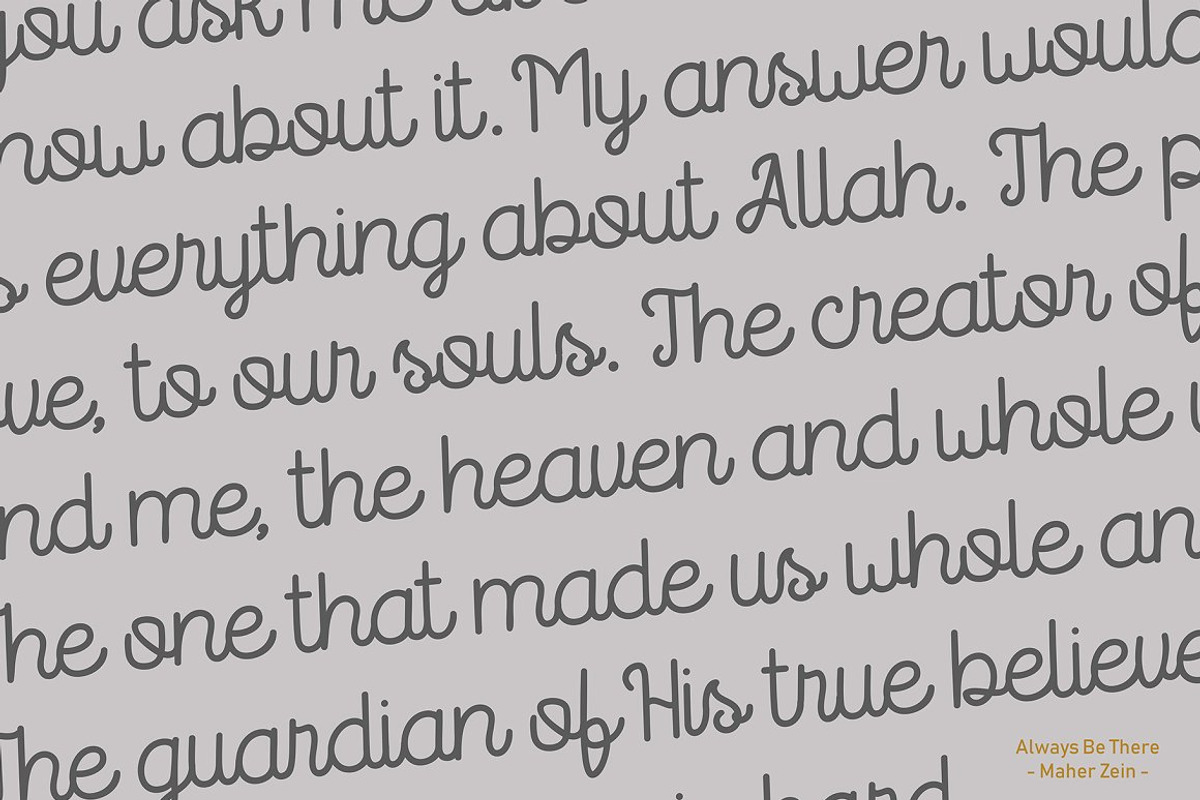 you ask me
now about it. My answer would
s everything about Allah. The p
ve, to our souls. The creator of
nd me, the heaven and whole
he one that made us whole an
The guardian of His true believe
hard
Always Be There
- Maher Zein -